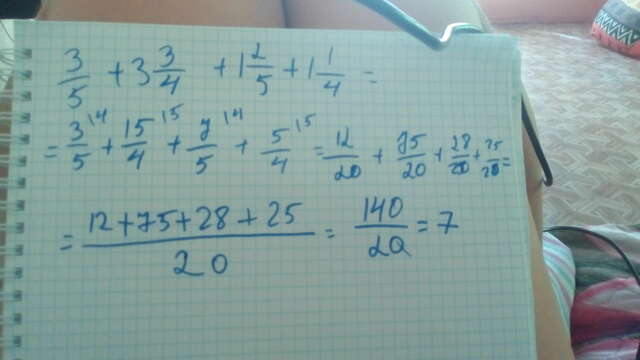 3/5 + 3 3/4 + 1 2/5 + 1 1/4 =
= 3/5 ^14 + 15/4 ^15 + 7/5 ^14 + 5/4 ^15 = 12/20 + 75/20 + 28/20 + 25/20 =
= (12+75+28+25)/20 = 140/20 = 7